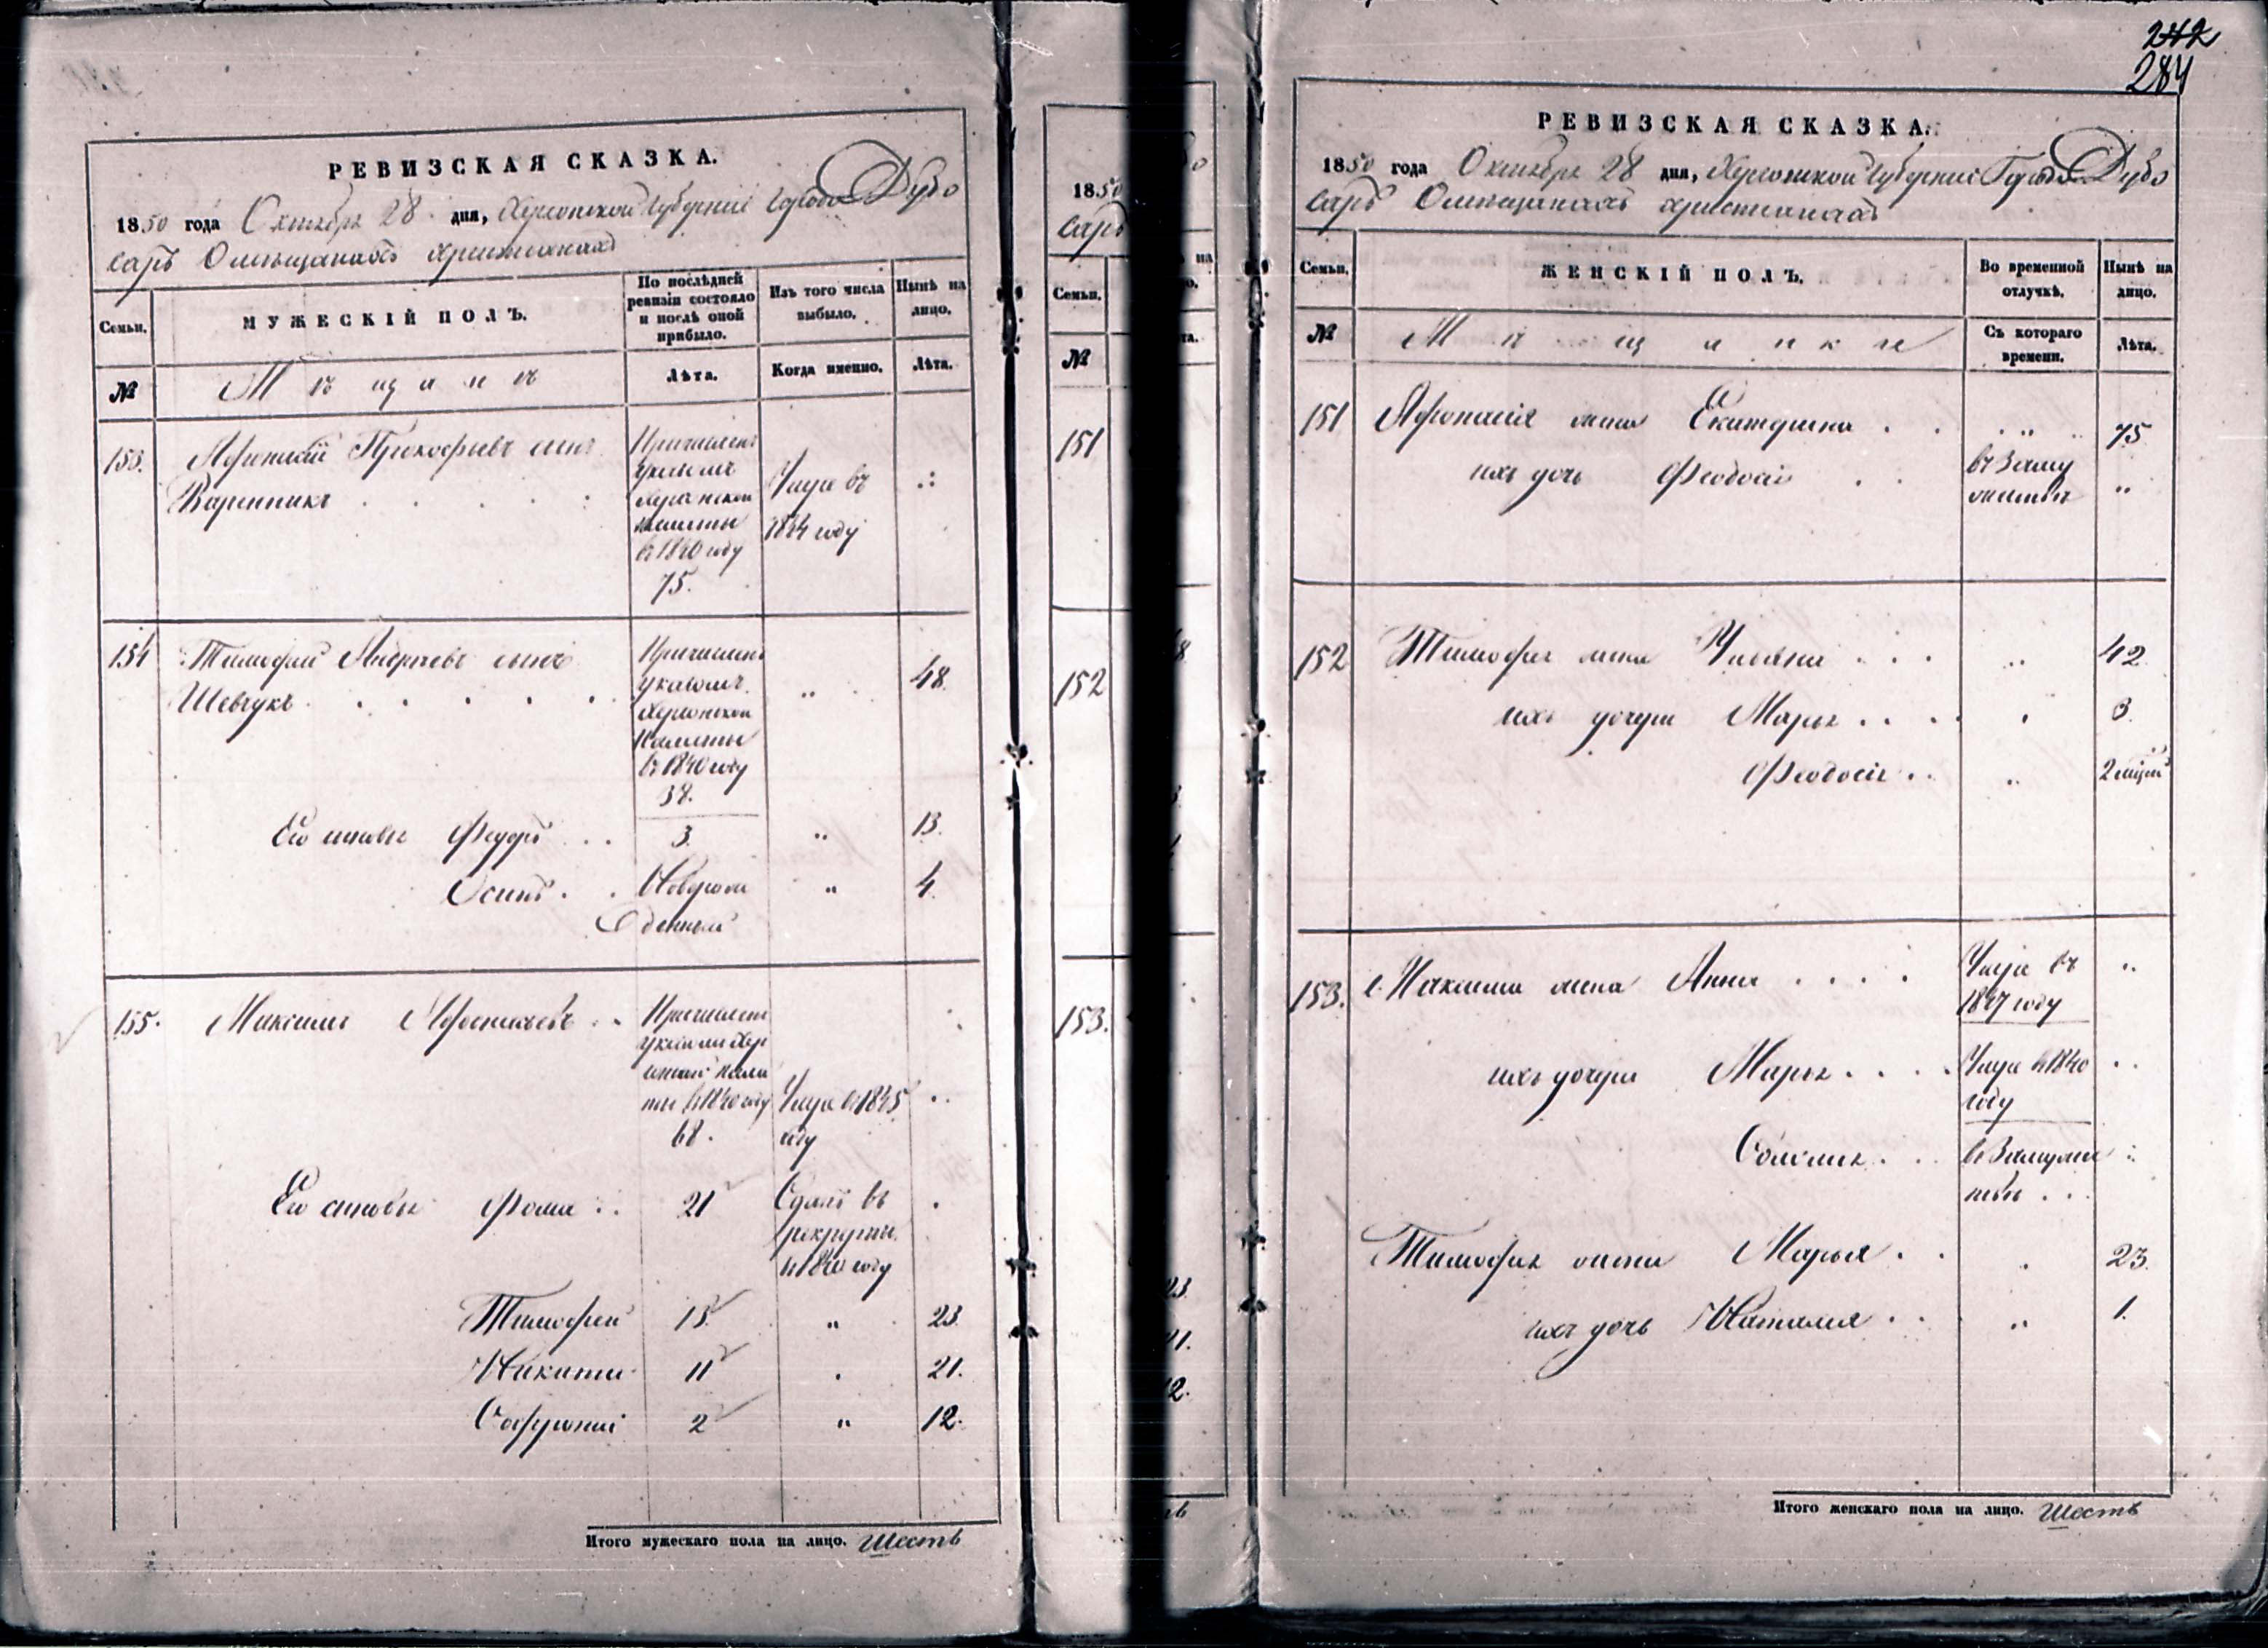 РЕВИЗСКАЯ СКАЗКА.
1850 года Октября 28 дня, Херсонской Губернии Города Дубо
саръ О мѣщанахъ христианахъ
Семьи.
МУЖЕСКІЙ ПОЛЪ.
По послѣдней ревизіи состояло и послѣ оной прибыло.
Изъ того числа выбыло.
Нынѣ на лицо.
№
Мѣщане
Лѣта.
Когда именно.
Лѣта.
153.
Прокофьевъ сынъ
Вареникъ
Причисленъ
указомъ
Херсонской
палаты
въ 1840 году
75.
Умре въ
1844 году
154
Тимофей Андреевъ сынъ
Шевчукъ
Причисленъ
указомъ
Херсонской
Палаты
въ 1840 году
38.
48.
Его сыновья Федоръ
3.
"
13.
Осипъ
Новорож
денный
"
4.
155.
Максимъ Афонасьевъ
Причисленъ
указомъ Хер
сонской пала
ты въ 1840 году
68.
Умре въ 1845
году
Его сыновья Фома
21
Сданъ въ
рекруты
въ 1840 году
Тимофей
13
"
23.
Никита
11
21.
Софроній
2
"
12.
Итого мужескаго пола на лицо. Шесть
1850
саръ
Семьи.
№
151
152
153.
242
284
РЕВИЗСКАЯ СКАЗКА.
1850 года Октября 28 дня, Херсонской Губерніи Города Дубо
саръ О мѣщанахъ христианахъ
Семьи.
ЖЕНСКІЙ ПОЛЪ.
Во временной отлучкѣ.
Нынѣ на лицо.
№
Мѣщанки
Съ котораго времени.
Лѣта.
151
Афонасія жена Екатерина
"
75
ихъ дочь Феодосія
въ Заму
жествѣ
"
152
Тимофея жена Ульяна
"
42.
ихъ дочери Марья
3.
Феодосія
"
2 мѣсяц
153.
Максима жена Анна
Умре въ
1847 году
"
ихъ дочери Марья
Умре въ 1840
году
въ Замуже
ствѣ
Тимофея жена Марья
23.
ихъ дочь Наталия
"
1.
Итого женскаго пола на лицо. Шесть